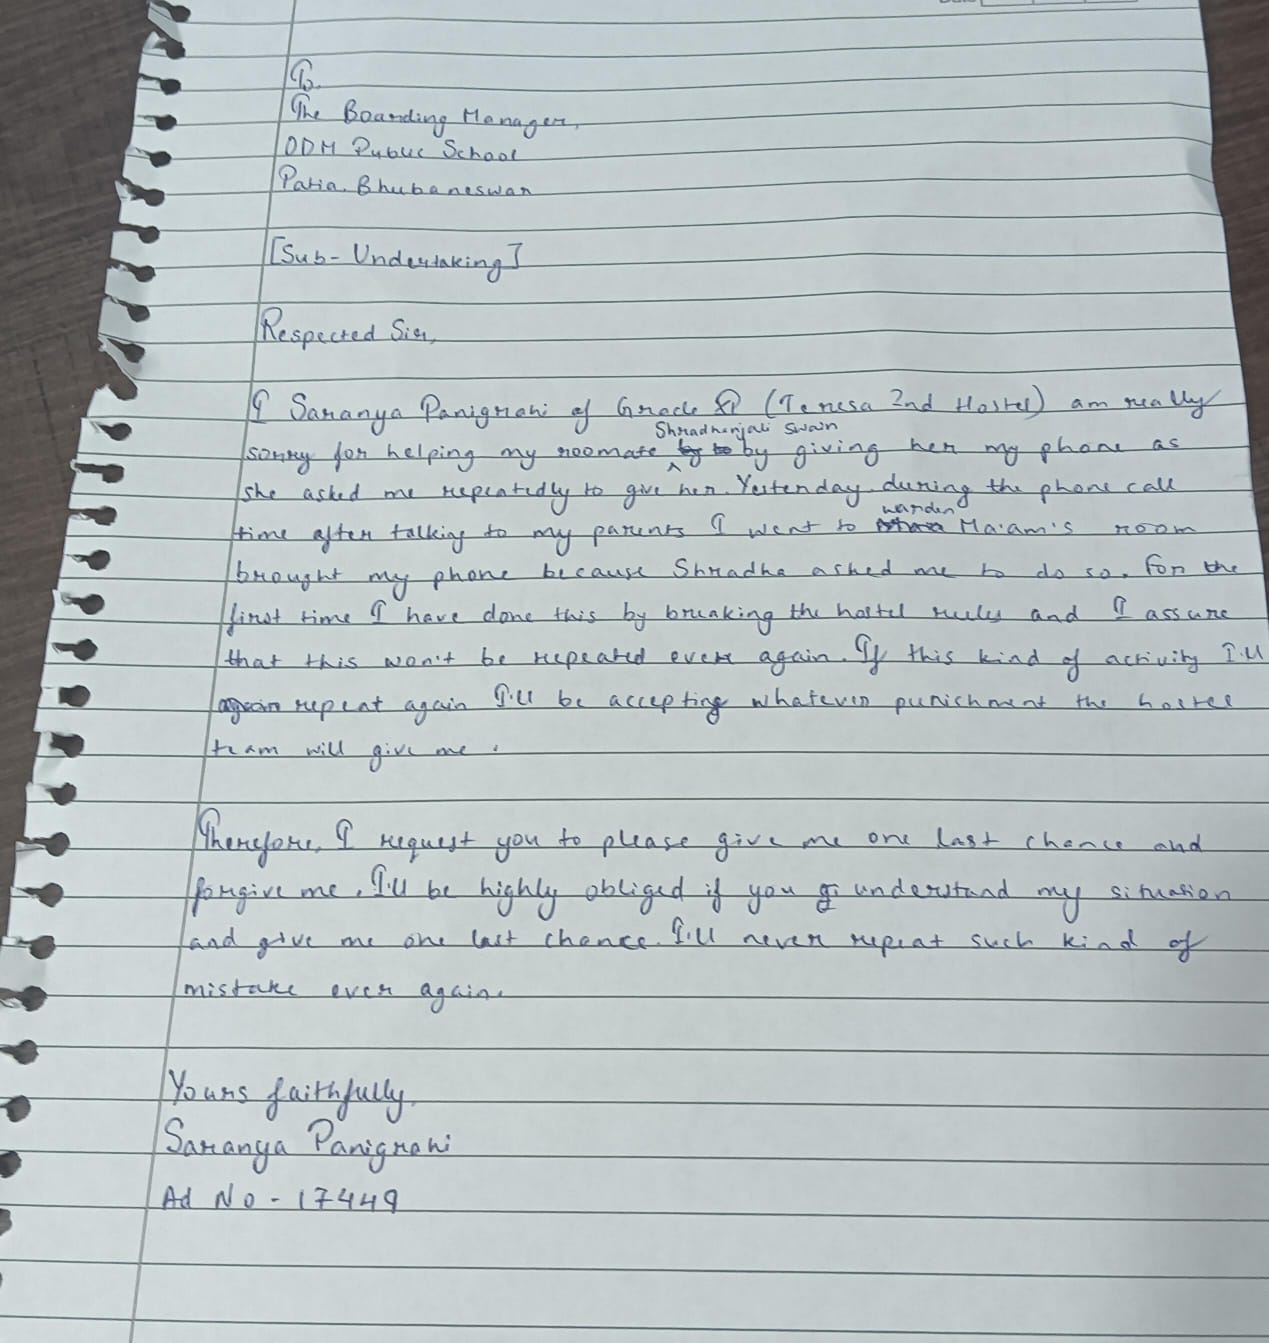 To,
The Boarding Manager,
ODM Public School
Patia, Bhubaneswar
[Sub- Undertaking]
Respected Sir,
I Saranya Panigrahi of Grade XI (Teresa 2nd Hostel) am really
Shradhanjali Swain
sorry for helping my roomate by giving her my phone as
she asked me repeatedly to give her. Yesterday during the phone call
warden
time after talking to my parents I went to Ma'am's room
brought my phone because Shradha asked me to do so. For the
first time I have done this by breaking the hostel rules and I assure
that this won't be repeated ever again. If this kind of activity I'll
again repeat again I'll be accepting whatever punichment the hostel
team will give me.
Therefore, I request you to please give me one last chance and
forgive me. I'll be highly obliged if you understand my situation
and give me one last chance. I'll never repeat such kind of
mistake ever again.
Yours faithfully,
Saranya Panigrahi
Ad No - 17449